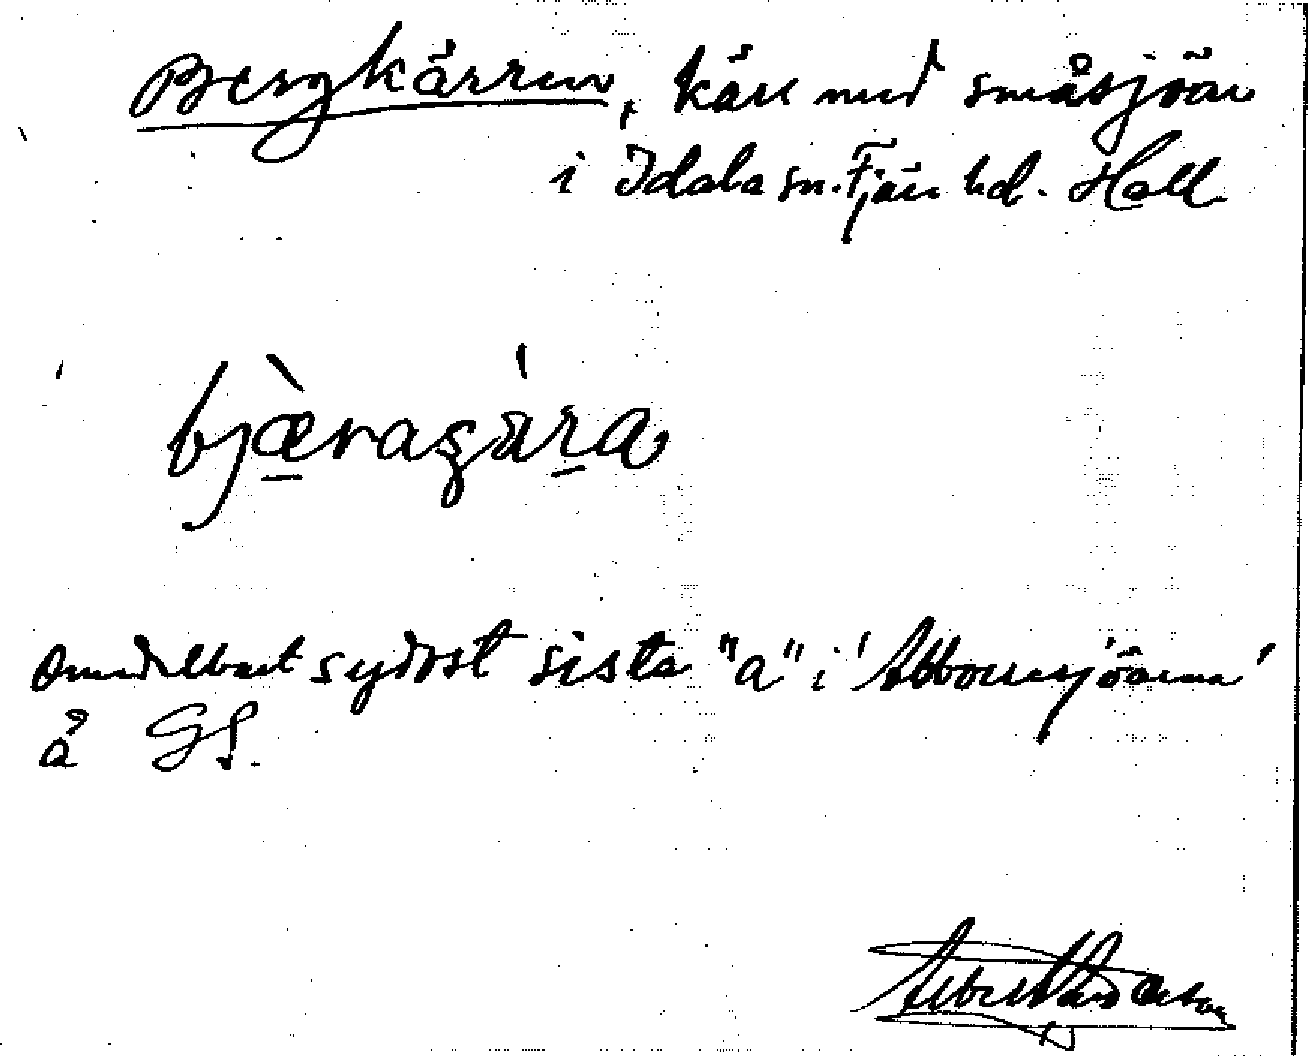 Bergkärren, kärr med småsjöar
i Idala sn. Fjäre hd. Hall.
bjæ̠̀ragára̠
Omedelbart sydost sista "a" i 'Abborrsjöarna'
å GS.